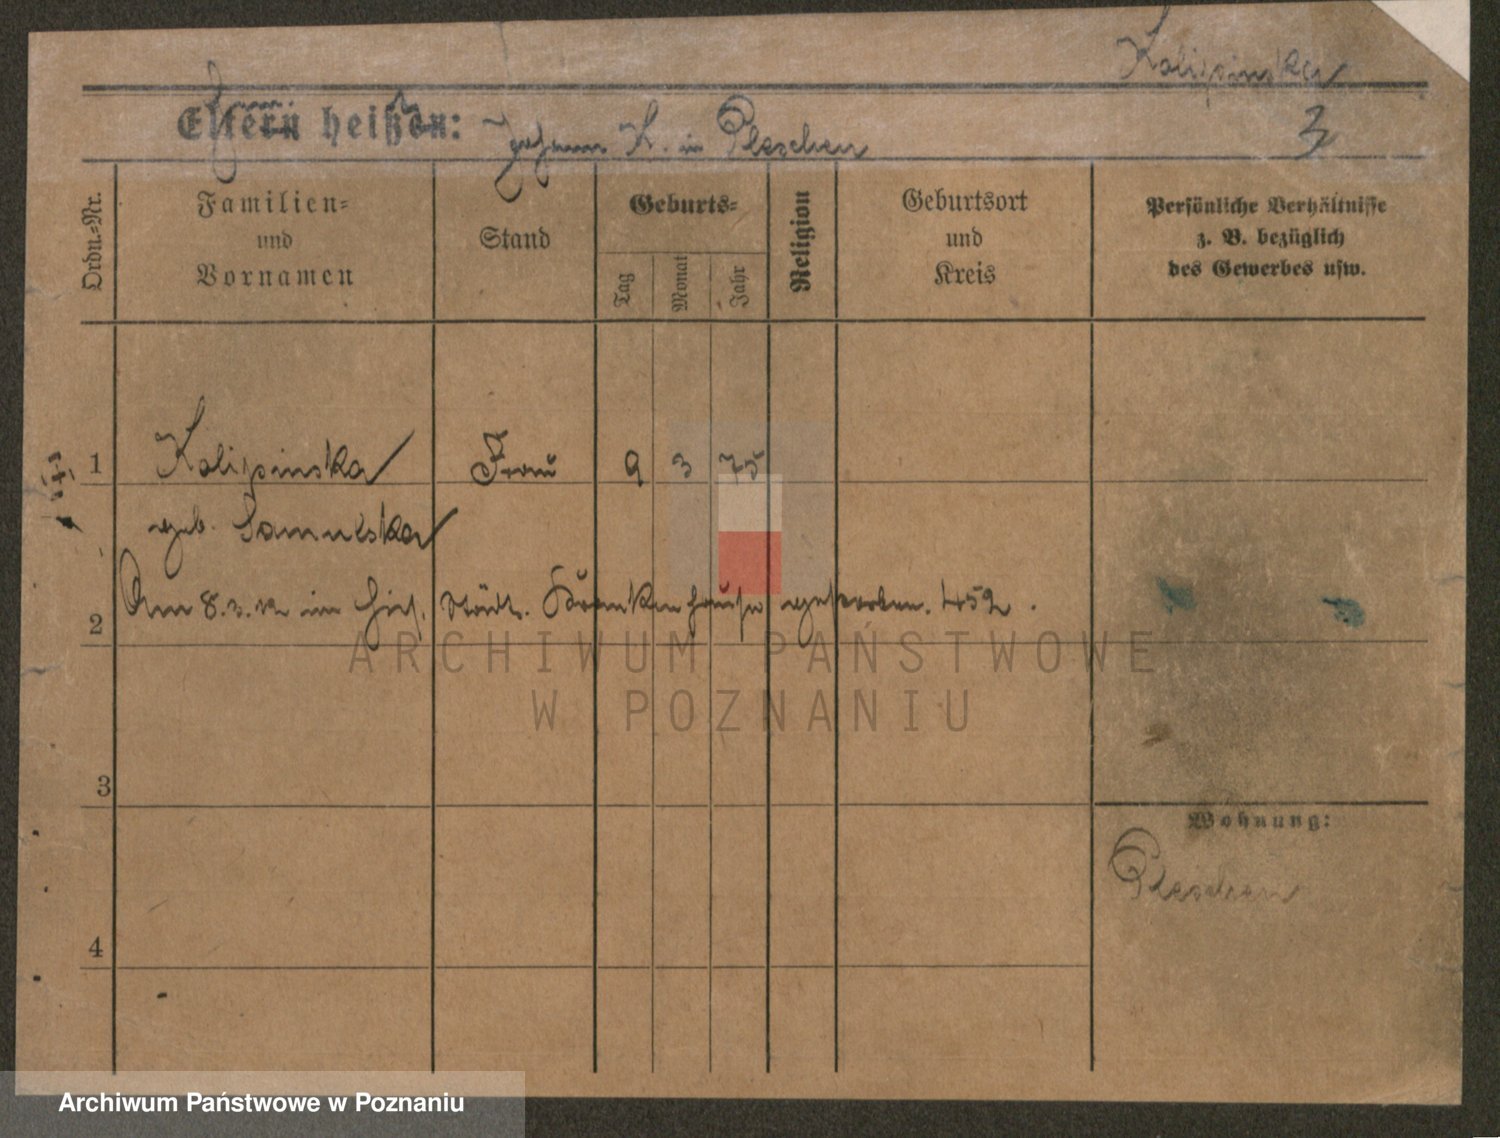 Kolipinska
Eltern heißen: Johann K. in Pleschen
3
Ordn.-Nr.
Familien-
und
Vornamen
Stand
Geburts-
Tag
Monat
Jahr
Religion
Geburtsort
und
Kreis
Persönliche Verhältnisse
z. B. bezüglich
des Gewerbes usw.
1 Kolipinska Frau 9 3 75
geb. Samulska
2 Am 8.3.12 im hies. städt. Krankenhause gestorben. 452.
ARCHIWUM PAŃSTWOWE
W POZNANIU
3
Wohnung:
Pleschen
4
Archiwum Państwowe w Poznaniu